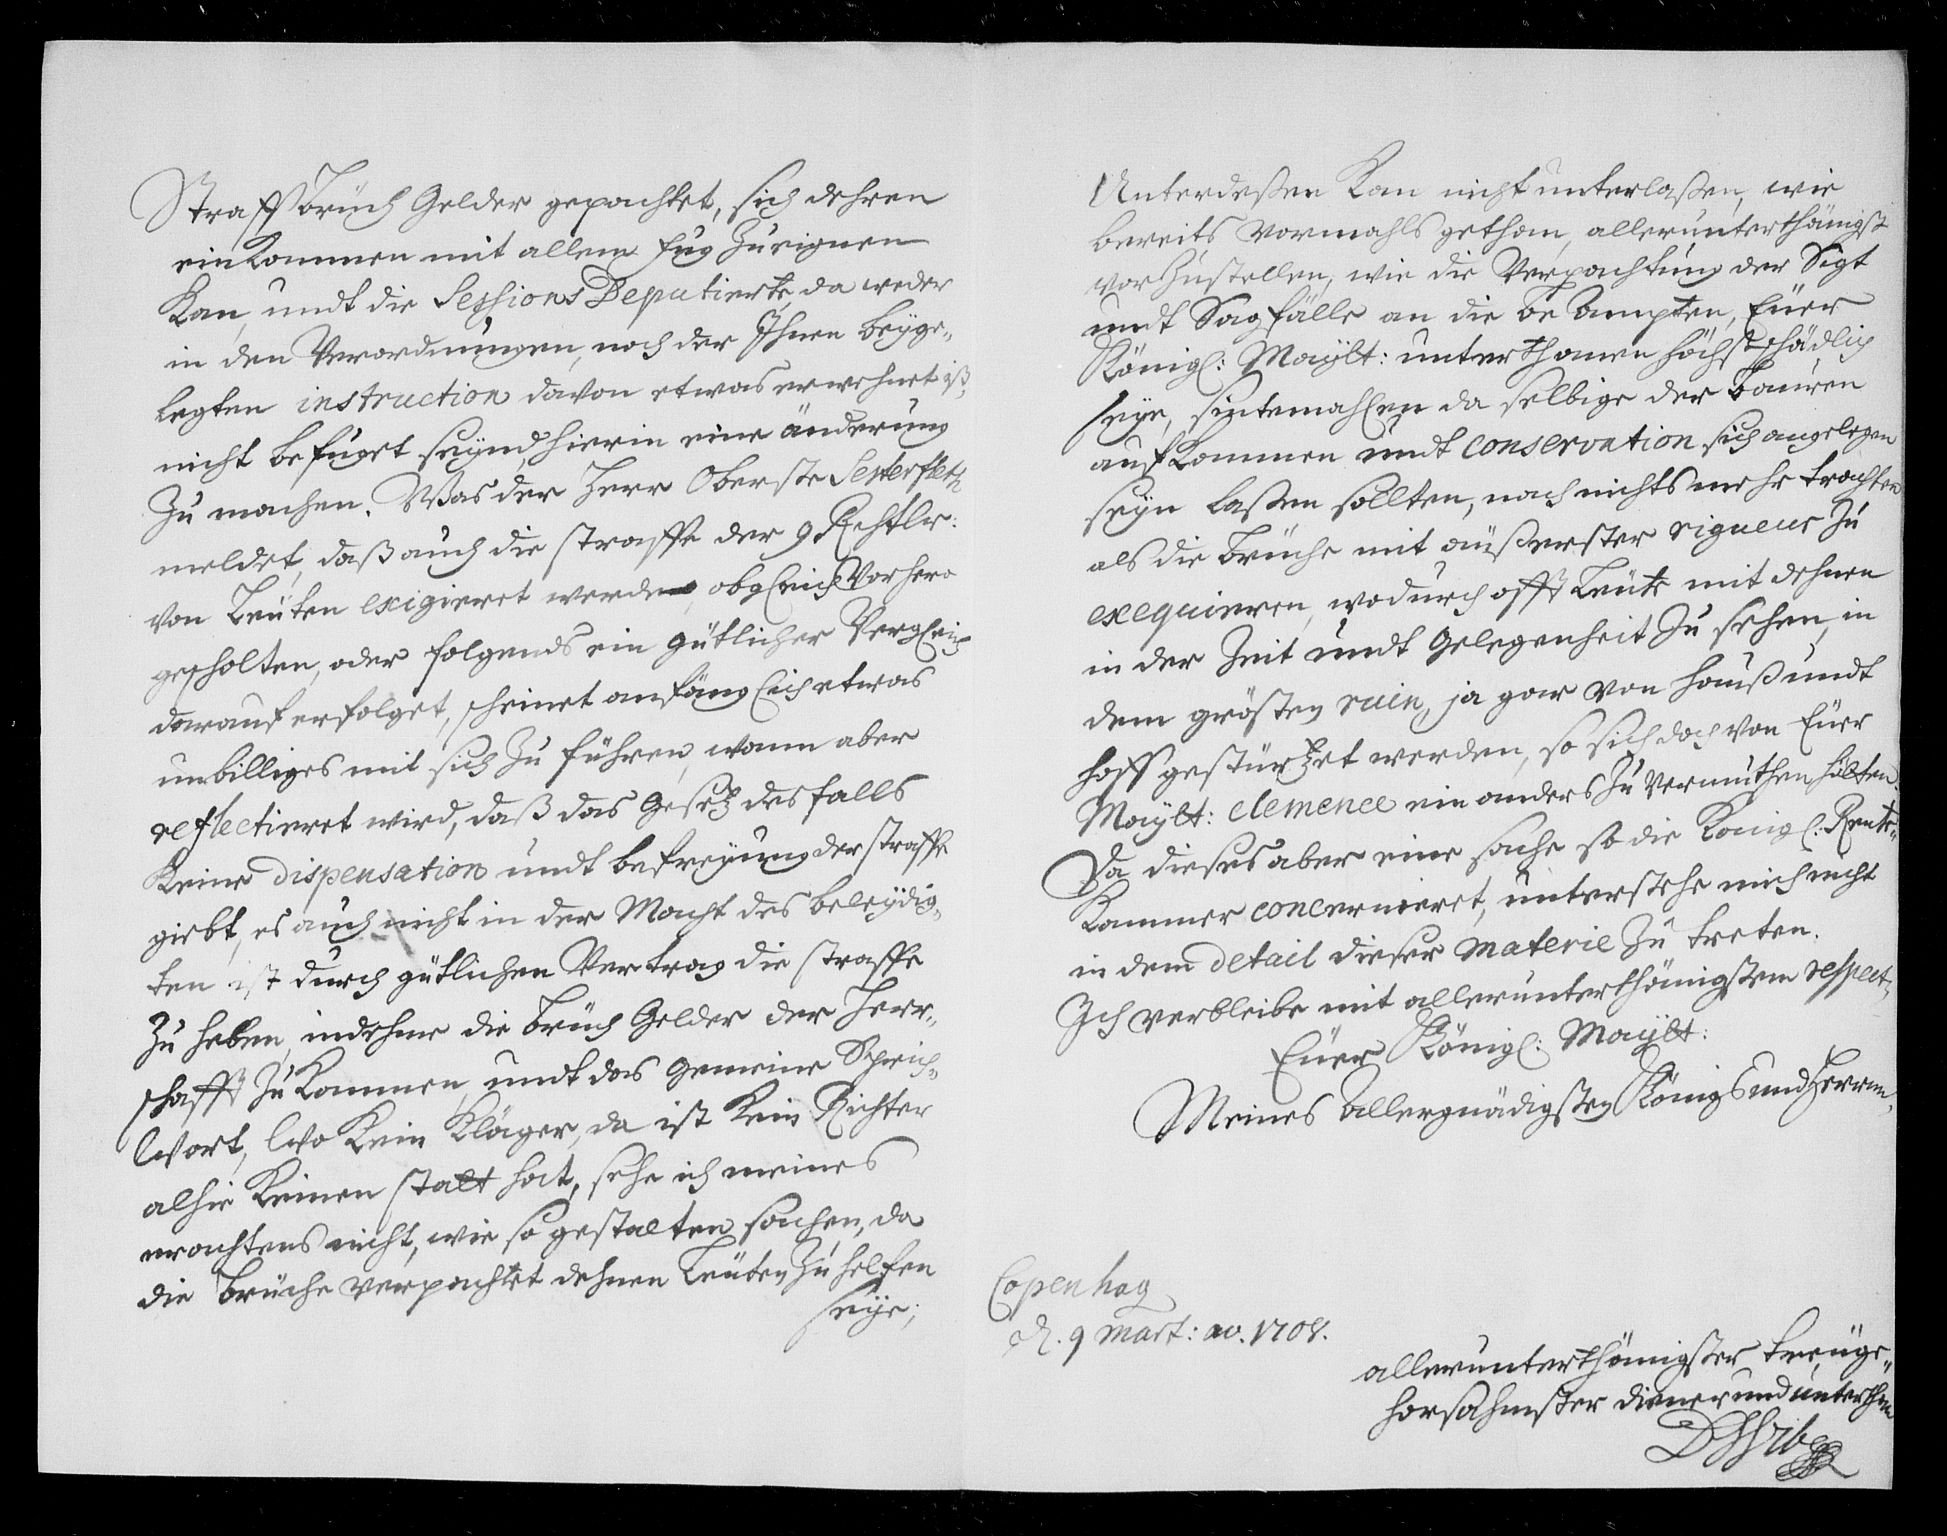 Straff Brüch Gelder gepachtet, sich dehren
ein Kommen mit allem fug zueignen
Kan, undt die Sessions Deputierte, da weder
in den Verordnungen, noch der Ihnen beyge„
legten instruction davon etwas erwehnet ist,
nicht befuget seynd, hierin eine änderung
Zu machen. Was der Herr Oberste Sesterfleth
meldet, daß auch die straffe der 9 Rchtlr:
von Leuten exigieret werden, obgleich Vorhero
gescholten, oder folgends ein gütlicher Vergleich
darauf erfolget, scheinet anfänglich etwas
unbilliges mit sich Zu führen, wann aber
reflectieret wird, daß das Gesetz desfalls
Keine dispensation undt befreyung der straffe
giebt, es auch nicht in der Macht des beleydig„
ten ist durch gütlichen Vertrag die straffe
Zu heben, indehme die Brüch Gelder der Herr„
schafft Zu Kommen, undt das gemeine Sprich„
Wort, Wo Kein Kläger, da ist Kein Richter
alhie Keinen statt hat, sehe ich meines
erachtens nicht, wie so gestalten sachen, da
die Brüche verpachtet dehnen Leuten Zu helfen
seye;
Unterdeßen Kan nicht unterlaßen, wie
bereits Vormahls gethan, allerunterthänigst
vorzustellen, wie die Verpachtung der Sigt
undt Sagfälle an die be Ampten, Euer
Königl: Maylt: unterthanen höchst schädlich
seye, sintemahlen da selbige der Bauren
aufkommen undt conservation sich angelegen
seyn laßen sollten, nach nichts mehr trachten
als die Brüche mit äußerster rigueur Zu
exequieren, wodurch offt Leute mit dehnen
in der Zeit undt Gelegenheit Zu sehen, in
dem grösten ruin, ja gar von Hauß undt
Hoff gestürtzet werden, so sich doch von Euer
Maylt: clemence ein anders Zu vermuthen hätten.
Da dieses aber eine sache so die Königl. Rente„
Kammer concernieret, unterstehe mich nicht
in dem detail dieser materie Zu treten.
Ich verbleibe mit allerunterthänigstem respect,
Euer Königl: Maylt:
Meines Allergnädigsten Königs und Herren,
Copenhag
d. 9 Mart: ao. 1708.
allerunterthänigster treuge„
horsahmster diener und unterthan